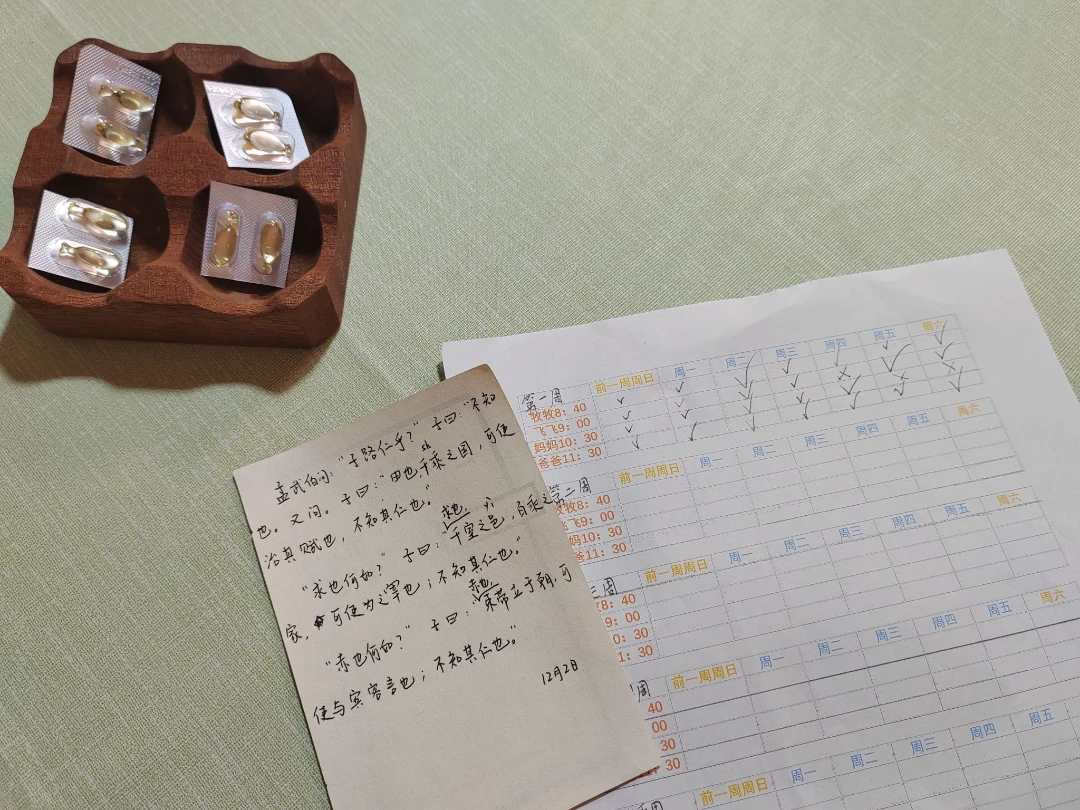 孟武伯问："子路仁乎？"子曰："不知
也。又问。子曰："由也,千乘之国，可使
sh
治其赋也，不知其仁也。"
"求也何如？"子曰："千室之邑，百乘之
求也
家，可使为之宰也；不知其仁也。"
"赤也何如？"子曰："束带立于朝，可
赤也
使与宾客言也；不知其仁也。"
12月2日
第一周
前一周周日 周一 周二 周三 周四 周五 周六
牧牧8：40
飞飞9：00
妈妈10：30
爸爸11：30
第二周
前一周周日 周一 周二 周三 周四 周五 周六
牧8：40
飞9：00
妈10：30
爸11：30
三周
前一周周日 周一 周二 周三 周四 周五 周六
8：40
9：00
0：30
1：30
周
前一周周日 周一 周二 周三 周四 周五 周六
40
00
30
30
周
前一周周日 周一 周二 周三 周四 周五